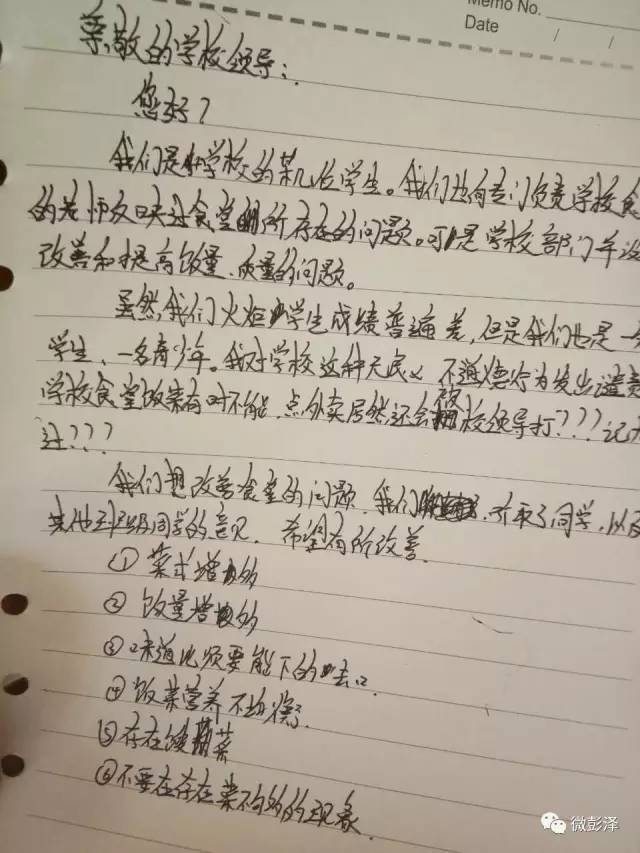 Memo No.
Date / /
尊敬的学校领导：
您好？
我们是中学校的某几位学生。我们也向专门负责学校食
的老师反映过食堂所存在的问题。可是学校部门并没
改善和提高饭量、质量的问题。
虽然我们火炬中学生成绩普遍差，但是我们也是一名
学生、一名青少年。我对学校这种无良 不道德行为发出谴责
学校食堂饭菜有时不能，点外卖居然还会被校领导打???记大
过???
我们想改善食堂的问题，我们，听取了同学，以及
其他班级同学的意见，希望有所改善.
①菜式增多
②饭量增多
③味道必须要能下的去口.
④饭菜营养不均衡.
⑤存在馊菜
⑥不要在存在菜不够的现象.
微彭泽